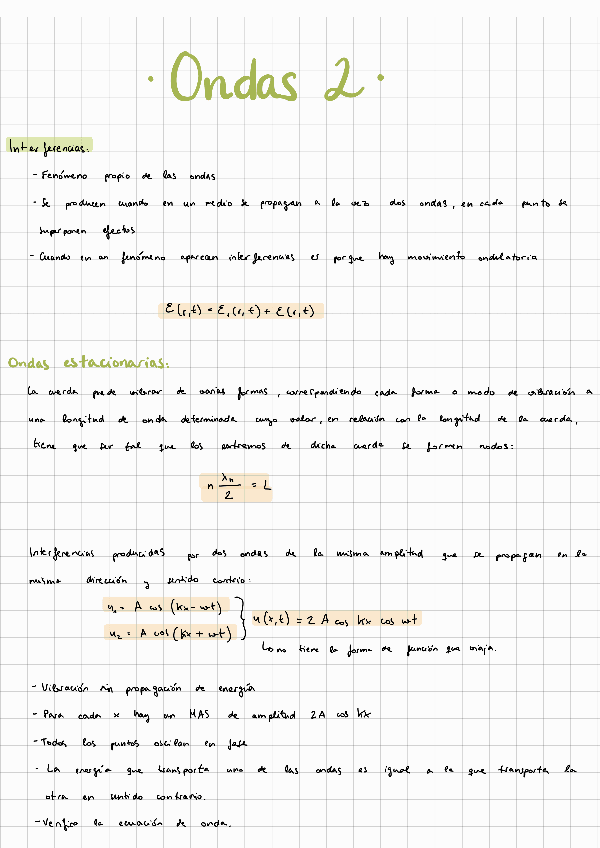 · Ondas 2 ·
Interferencias:
- Fenómeno propio de las ondas
- Se producen cuando en un medio se propagan a la vez dos ondas, en cada punto se
superponen efectos
- Cuando en un fenómeno aparecen interferencias es porque hay movimiento ondulatorio
Ɛ(r,t) = Ɛ₁(r,t) + Ɛ(r,t)
Ondas estacionarias:
La cuerda puede vibrar de varias formas, correspondiendo cada forma o modo de vibración a
una longitud de onda determinada cuyo valor, en relación con la longitud de la cuerda,
tiene que ser tal que los extremos de dicha cuerda se formen nodos:
n λₙ/2 = L
Interferencias producidas por dos ondas de la misma amplitud que se propagan en la
misma dirección y sentido contrario:
u₁ = A cos (kx - wt)
u₂ = A cos (kx + wt)
u(x,t) = 2 A cos kx cos wt
↳ no tiene la forma de función que viaja.
- Vibración sin propagación de energía
- Para cada x hay un MAS de amplitud 2A cos kx
- Todos los puntos oscilan en fase
- La energía que transporta una de las ondas es igual a la que transporta la
otra en sentido contrario.
- Verifica la ecuación de onda.